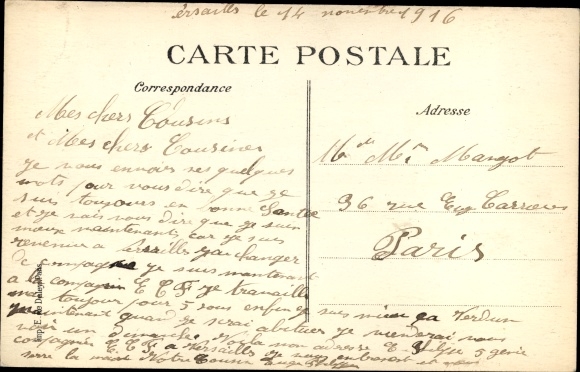 ersailles le 14 novembre 1916
CARTE POSTALE
Correspondance
Adresse
Mes chers Cousins
et Mes chers Cousines
je vous envoir ses quelques
mots pour vous dire que je
suis toujours en bonne Santée
et je vais vous dire que je suis
mieux maintenants car je suis
revenue a Versailles par changer
de compagnie je suis maintenant
a la compagnie E C F je travaille
toujour pour 5 sous enfin je suis mieu ca Verdun
maintenant quand je serai abituer je viendrai vous
voir un dimanche Voila mon adresse E 5 genie
compagnie E C F a Versailles je vous embrasse et vous
serre la main Votre Cousin
M. Mme Margot
36 rue Eug Carrieres
Paris